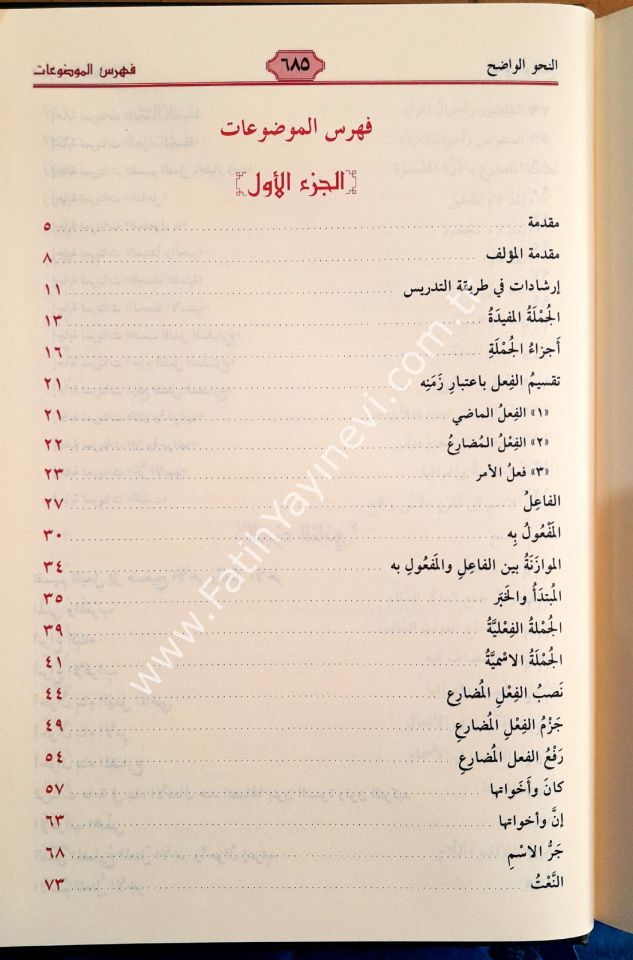 النحو الواضح ٦٨٥ فهرس الموضوعات
فهرس الموضوعات
الجزء الأول
مقدمة ٥
مقدمة المؤلف ٨
إرشادات في طريقة التدريس ١١
الجُمْلَةُ المفيدَةُ ١٣
أَجزاءُ الجُمْلَةِ ١٦
تقسيمُ الفِعل باعتبارِ زَمَنِه ٢١
«١» الفِعلُ الماضي ٢١
«٢» الفِعْلُ المُضارِعُ ٢٢
«٣» فعلُ الأمر ٢٣
الفاعِلُ ٢٧
المَفْعُولُ بِه ٣٠
الموازَنَةُ بين الفاعِلِ والمَفْعُولِ به ٣٤
المُبتدَأُ والخَبَر ٣٥
الجُمْلَةُ الفِعْليَّةُ ٣٩
الجُمْلَةُ الاسْمِيَّةُ ٤١
نَصبُ الفِعْلِ المُضارِع ٤٤
جَزْمُ الفِعْلِ المُضارِعِ ٤٩
رَفْعُ الفعل المُضارِعِ ٥٤
كانَ وأَخَواتها ٥٧
إنَّ وأخواتها ٦٣
جَرُّ الاسْمِ ٦٨
النَّعْتُ ٧٣
www.FatihYayinevi.com.tr